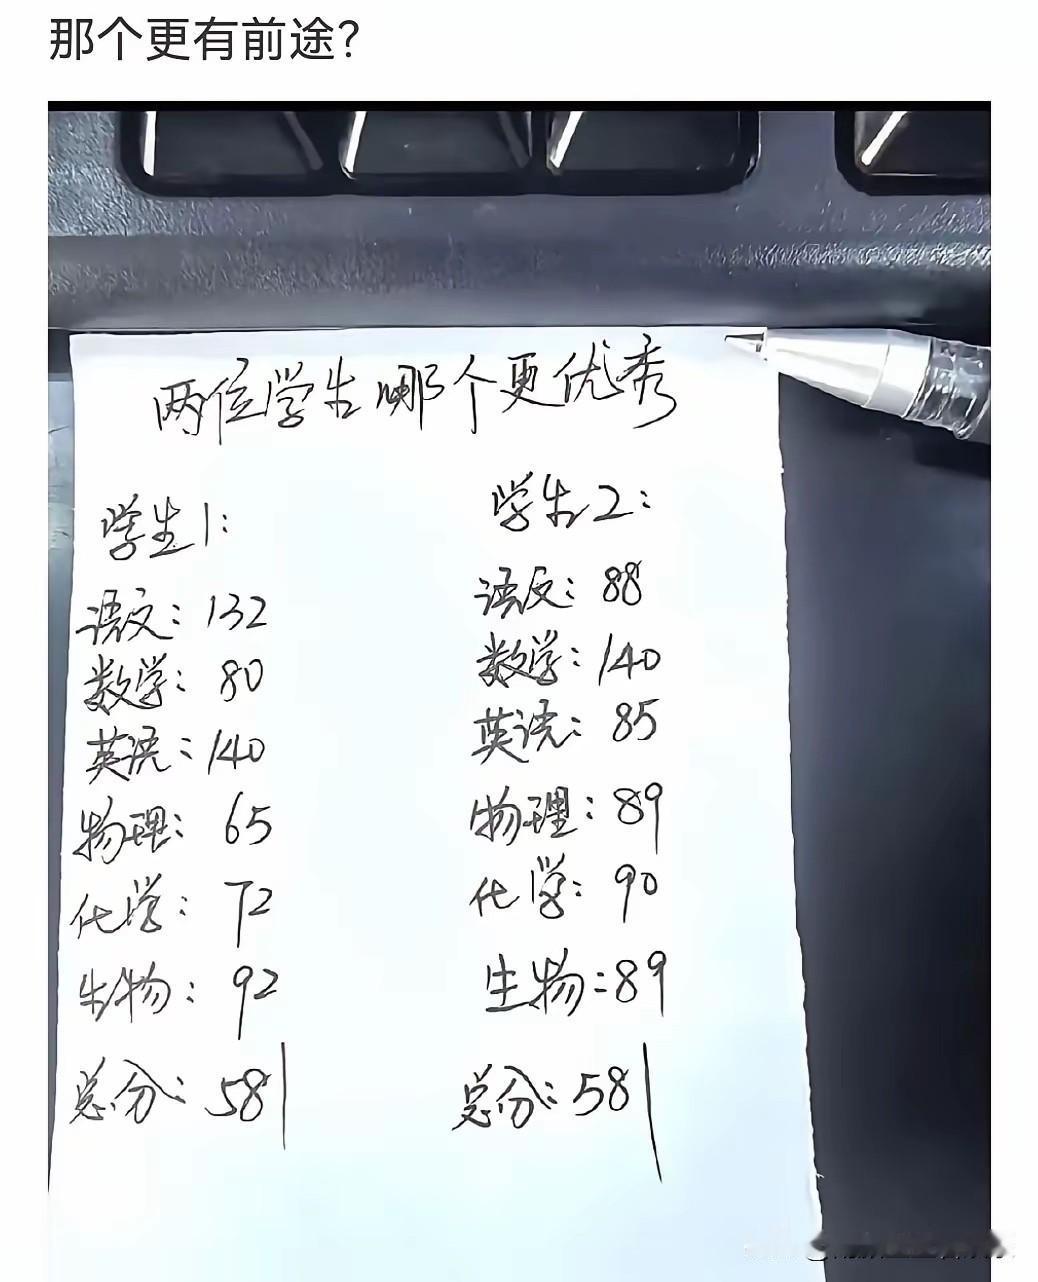 那个更有前途?
两位学生哪个更优秀
学生1:
语文: 132
数学: 80
英语: 140
物理: 65
化学: 72
生物: 92
总分: 581
学生2:
语文: 88
数学: 140
英语: 85
物理: 89
化学: 90
生物: 89
总分: 581